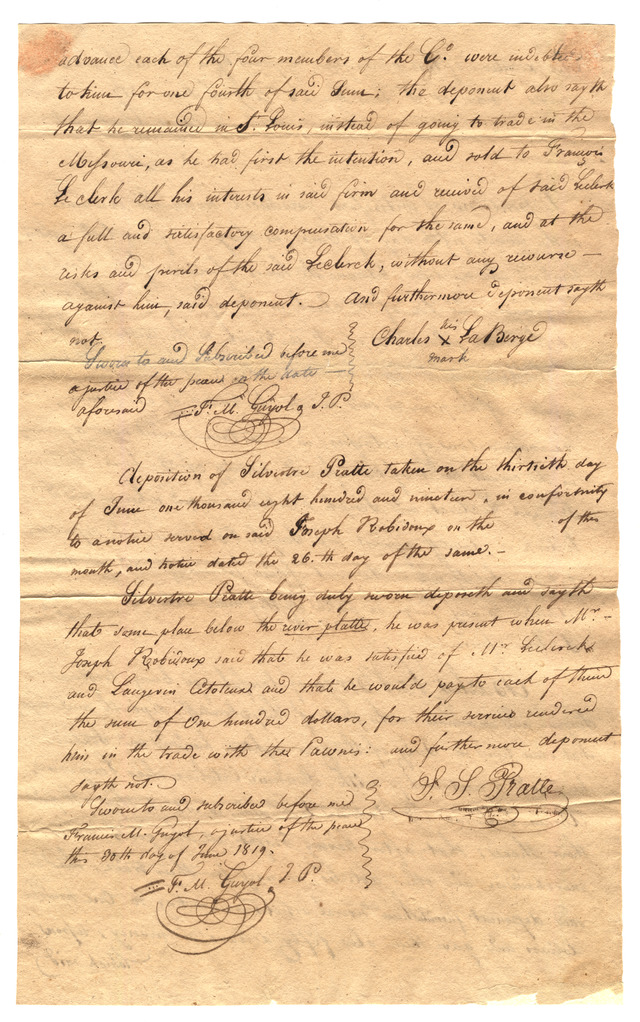 advance each of the four members of the Co. were indebted
to him for one fourth of said Sum; the deponent also sayth
that he remained in St. Louis, instead of going to trade in the
Missouri, as he had first the intention, and sold to François
Leclerk all his interests in said firm and recived of said Leclerk
a full and sattisfactory compensation for the same, and at the
risks and perils of the said Leclerck, without any recourse —
against him, said deponent. And furthermore deponent sayth
not.
Charles his X mark LaBerge
Sworn to and Subscribed before me
a justice of the peace on the date
aforesaid
F. M. Guyol J. P.
Deposition of Silvertre Pratte taken on the thirtieth day
of June one thousand eight hundred and nineteen, in conformity
to a notice served on said Joseph Robidoux on the of this
month, and notice dated the 26.th day of the same. —
Silvertre Pratte being duly sworn deposeth and sayth
that some place below the river platte, he was present when Mr. —
Joseph Robidoux said that he was satisfied of Mr. Leclerck
and Langevin and that he would pay to each of them
the sum of One hundred dollars, for their service rendered
him in the trade with the Pawnis: and furthermore, deponent
sayth not.
S. S. Pratte
Sworn to and subscribed before me
Francis M. Guyol, a justice of the peace
this 30th day of June 1819.
F. M. Guyol J. P.